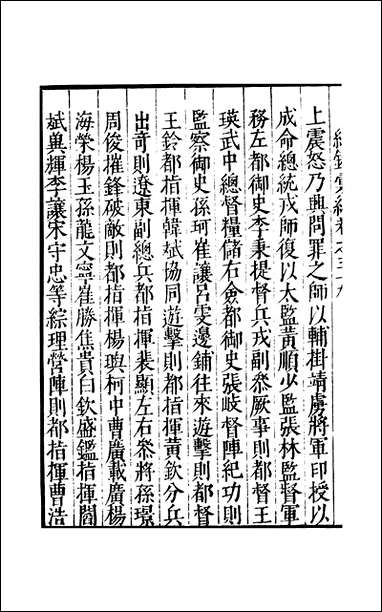 上震怒乃興問罪之師以輔掛靖虜將軍印授以
成命總統戎師復以太監黃順少監張林監督軍
務左都御史李秉提督兵戎副叅厥事則都督王
瑛武中總督糧儲右僉都御史張岐督陣紀功則
監察御史孫珂崔讓呂雯邊鋪往來遊擊則都督
王鈴都指揮韓斌協同遊擊則都指揮黃欽分兵
出竒則遼東副總兵都指揮裴顯左右叅將孫璟
周俊摧鋒破敵則都指揮楊璵柯中曹廣載廣楊
海榮楊玉孫龍文寧崔勝焦貴白欽盛鑑指揮閻
斌與輝李讓宋守忠等綜理營陣則都指揮曹浩